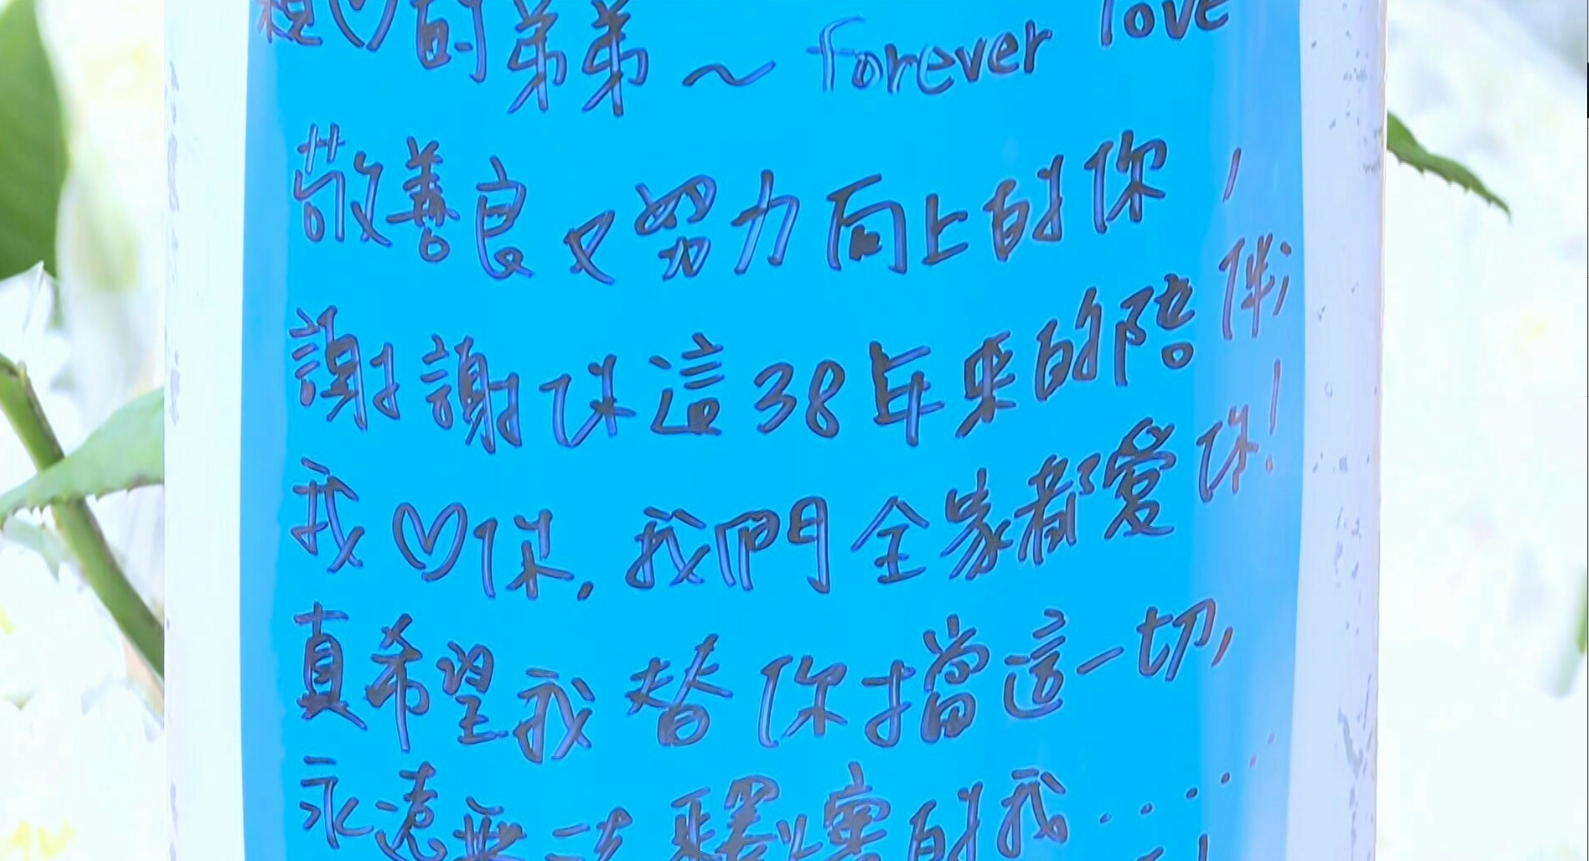 親♡的弟弟～forever love
敬善良又努力向上的你，
謝謝你這38年來的陪伴;
我♡你,我們全家都愛你!
真希望我替你擋這一切,
永遠無法釋懷的我......